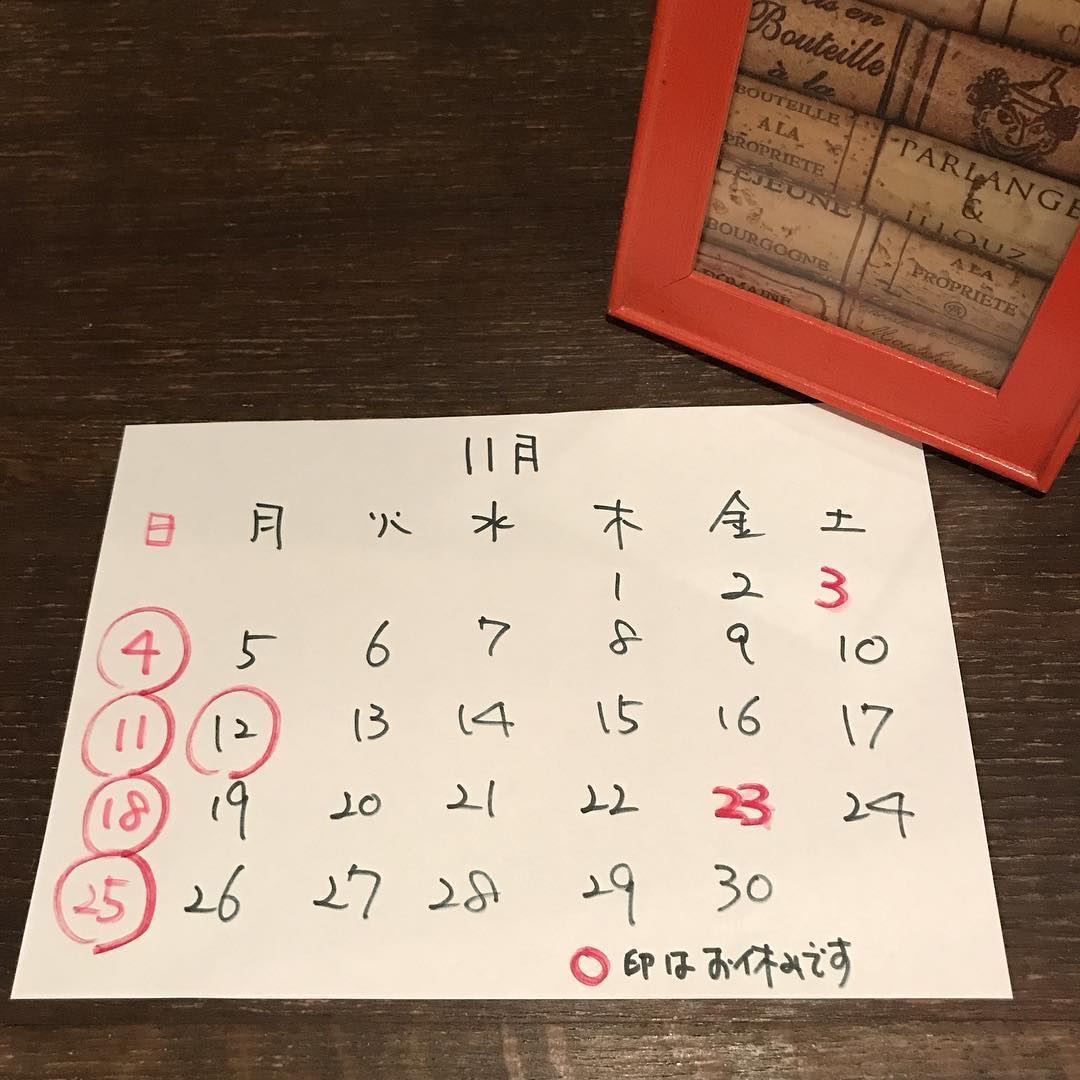 is en
Bouteille
à la
BOUTEILLE
A LA
PROPRIETE
LEJEUNE
BOURGOGNE
DOMAINE
PARLANGE
&
ILLOUZ
A LA
PROPRIETE
11月
日 月 火 水 木 金 土
1 2 3
4 5 6 7 8 9 10
11 12 13 14 15 16 17
18 19 20 21 22 23 24
25 26 27 28 29 30
○ 印はお休みです